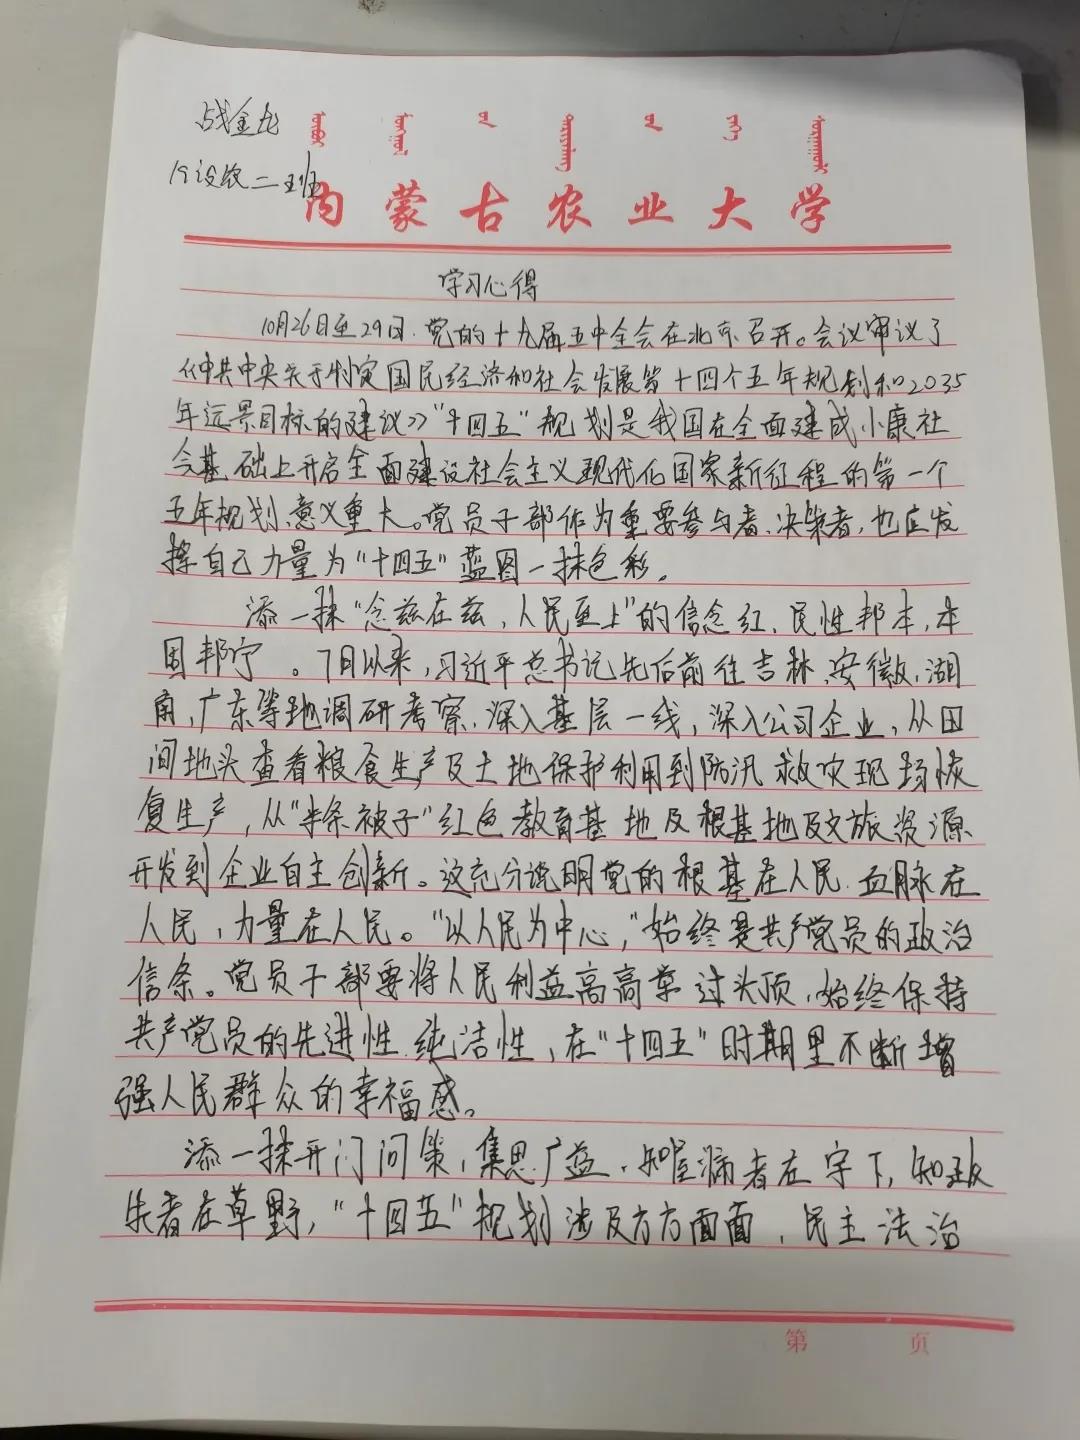 战金龙
19设农二班
内蒙古农业大学
学习心得
10月26日至29日.党的十九届五中全会在北京召开。会议审议了
《中共中央关于制定国民经济和社会发展第十四个五年规划和2035
年远景目标的建议》"十四五"规划是我国在全面建成小康社
会基础上开启全面建设社会主义现代化国家新征程的第一个
五年规划、意义重大。党员干部作为重要参与者、决策者,也应发
挥自己力量为"十四五"蓝图一抹色彩。
添一抹"念兹在兹,人民至上"的信念红、民惟邦本,本
固邦宁。7月以来,习近平总书记先后前往吉林、安徽、湖
南,广东等地调研考察、深入基层一线,深入公司企业,从田
间地头查看粮食生产及土地保护利用到防汛救灾现场恢
复生产,从"半条被子"红色教育基地及根基地及文旅资源
开发到企业自主创新。这充分说明党的根基在人民.血脉在
人民,力量在人民。"以人民为中心,"始终是共产党员的政治
信条。党员干部要将人民利益高高举过头顶,始终保持
共产党员的先进性.纯洁性,在"十四五"时期里不断增
强人民群众的幸福感。
添一抹开门问策,集思广益、知屋漏者在宇下,知政
失者在草野,"十四五"规划涉及方方面面,民主法治
第 页